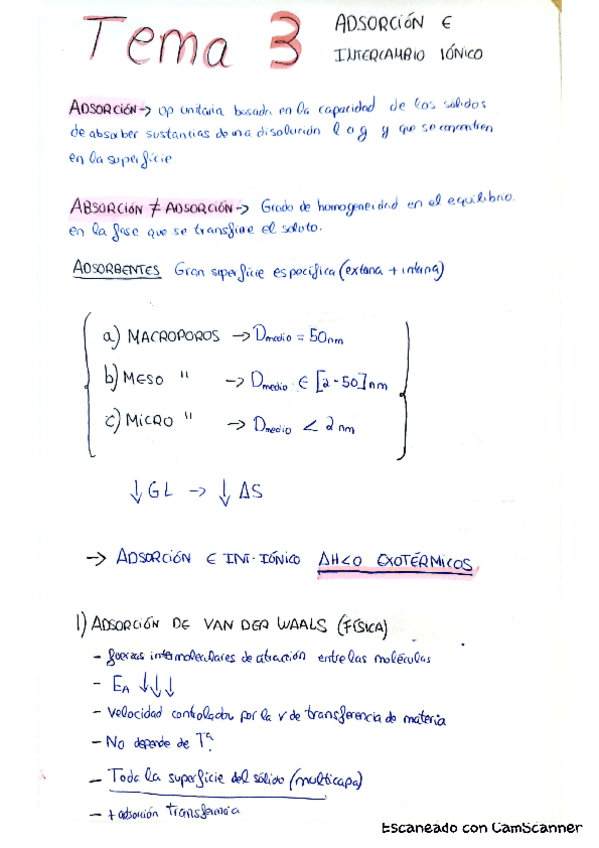 Tema 3 ADSORCIÓN E
INTERCAMBIO IÓNICO
ADSORCIÓN → op unitaria basada en la capacidad de los sólidos
de absorber sustancias de una disolución l o g y que se concentren
en la superficie
ABSORCIÓN ≠ ADSORCIÓN → Grado de homogeneidad en el equilibrio.
en la fase que se transfiere el soluto.
ADSORBENTES Gran superficie específica (externa + interna)
a) MACROPOROS → Dmedio = 50nm
b) MESO " → Dmedio ∈ [2-50]nm
c) MICRO " → Dmedio < 2nm
↓GL → ↓ΔS
→ ADSORCIÓN E INT. IÓNICO ΔH<0 EXOTÉRMICOS
1) ADSORCIÓN DE VAN DER WAALS (FÍSICA)
- fuerzas intermoleculares de atracción entre las moléculas
- EA ↓↓↓
- Velocidad controlada por la v de transferencia de materia
- No depende de Tª.
- Toda la superficie del sólido (multicapa)
- + adsorción transferencia
Escaneado con CamScanner